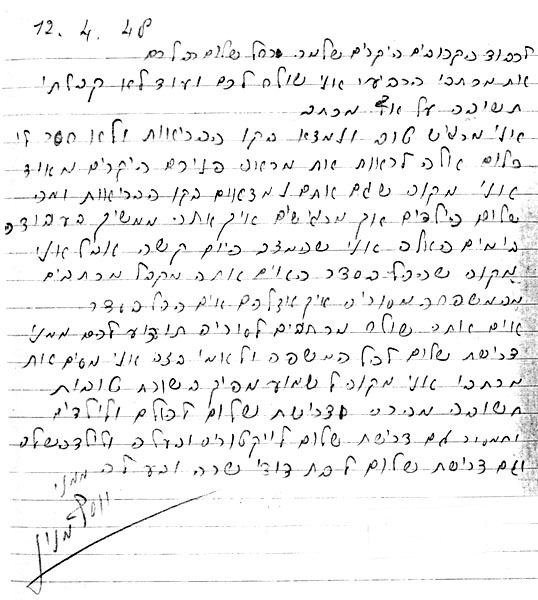 12. 4. 48
לכבוד הקרובים היקרים שלמה רחל שלום רב לכם
את מכתבי הרביעי אני שולח לכם ועוד לא קבלתי
תשובה על אף מכתב
אני מרגיש טוב ונמצא בקו הבריאות ולא חסר לי
כלום אלה לראות את מראה פניכם היקרים מאוד
אני מקוה שגם אתם נמצאים בקו הבריאות ומה
שלום הילדים איך מרגישים איך אתה ממשיך בעבודה
בימים האלה אני שהמצב כיום קשה אבל אני
מקוה שהכל בסדר האים אתה מקבל מכתבים
מהמשפחה מסוריה איך אצלהם אים הכל בסדר
אים אתה שולח מכתבים לסוריה תודיע להם ממני
דרישת שלום לכל המשפחה ולאמי בזה אני מסים את
מכתבי אני מקוה לשמוע מפיך בשורות טובות
תשובה מהרה ודרישת שלום לכולם ולילדים
גם דרישת שלום לויקטוריה ובעלה
וגם דרישת שלום לבת דודי שרה ובעלה ממני
יוסף